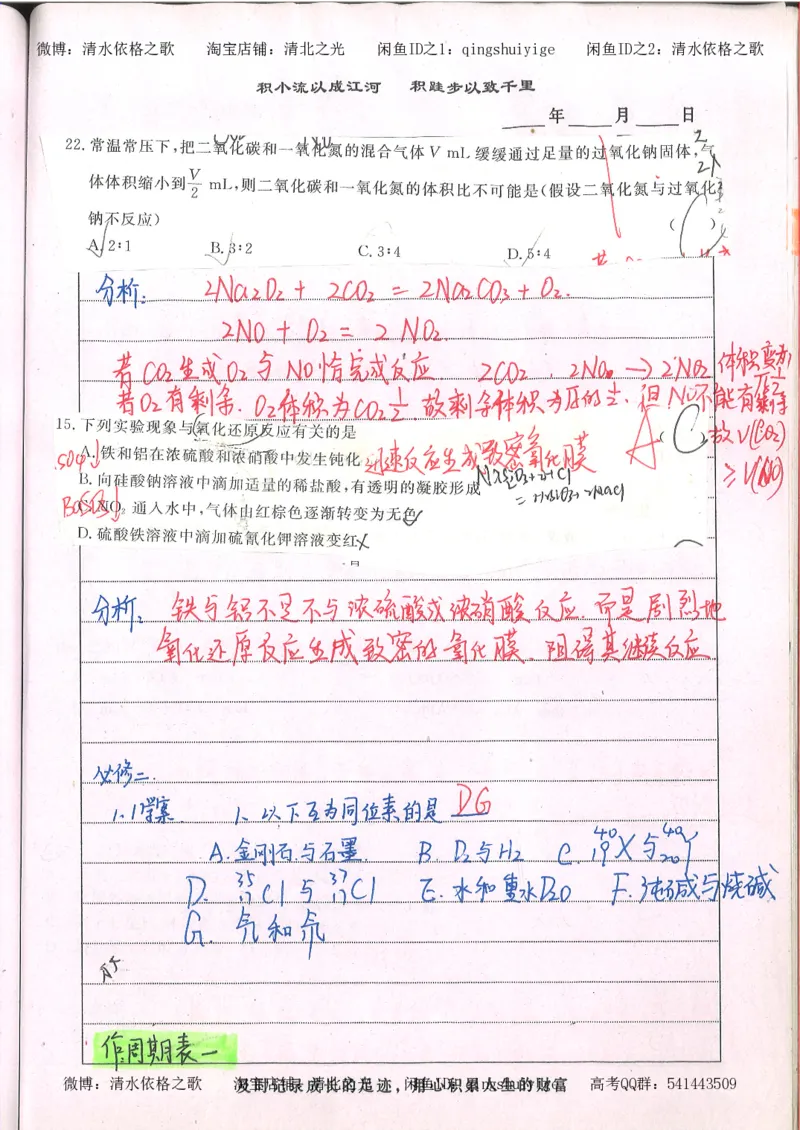 微博：清水依格之歌 淘宝店铺：清北之光 闲鱼ID之1：qingshuiyige 闲鱼ID之2：清水依格之歌
积小流以成江河 积跬步以致千里
年 月 日
22. 常温常压下,把二氧化碳和一氧化氮的混合气体 V mL 缓缓通过足量的过氧化钠固体,气
体体积缩小到 V/2 mL,则二氧化碳和一氧化氮的体积比不可能是(假设二氧化氮与过氧化
钠不反应) ( )
A. 2∶1 B. 3∶2 C. 3∶4 D. 5∶4
分析: 2Na2O2 + 2CO2 = 2Na2CO3 + O2.
2NO + O2 = 2NO2.
若CO2生成O2与NO恰完成反应. 2CO2 . 2NO → 2NO2 体积变为
若O2有剩余. O2体积为CO2 1/2. 故剩余体积为原的 1/2. 但NO不能有剩余
故V(CO2)
≥V(NO)
15. 下列实验现象与氧化还原反应有关的是 A C
A. 铁和铝在浓硫酸和浓硝酸中发生钝化 迅速反应生成致密氧化膜
B. 向硅酸钠溶液中滴加适量的稀盐酸,有透明的凝胶形成
C. NO2 通入水中,气体由红棕色逐渐转变为无色
D. 硫酸铁溶液中滴加硫氰化钾溶液变红
分析: 铁与铝不是不与浓硫酸或浓硝酸反应. 而是剧烈地
氧化还原反应生成致密的氧化膜. 阻碍其继续反应
必修二.
1.1学案 1. 以下互为同位素的是 DG
A. 金刚石与石墨 B. D2与H2 C. 40 19 X与 40 20 Y
D. 35 17 Cl 与 37 17 Cl E. 水和重水D2O F. 纯碱与烧碱
G. 氕和氘
作周期表一
及时记录成长的足迹，用心积累人生的财富
微博：清水依格之歌 淘宝店铺：清北之光 闲鱼ID：qingshuiyige 高考QQ群：541443509